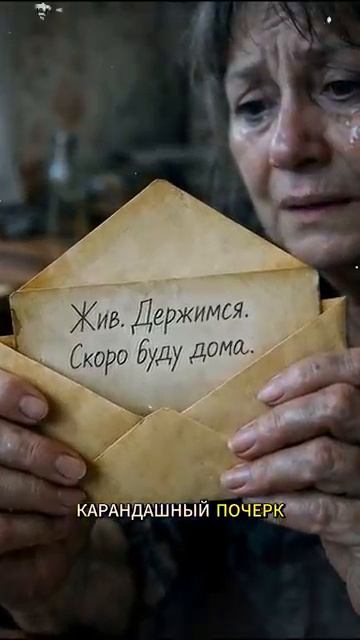 Жив. Держимся.
Скоро буду дома.
КАРАНДАШНЫЙ ПОЧЕРК